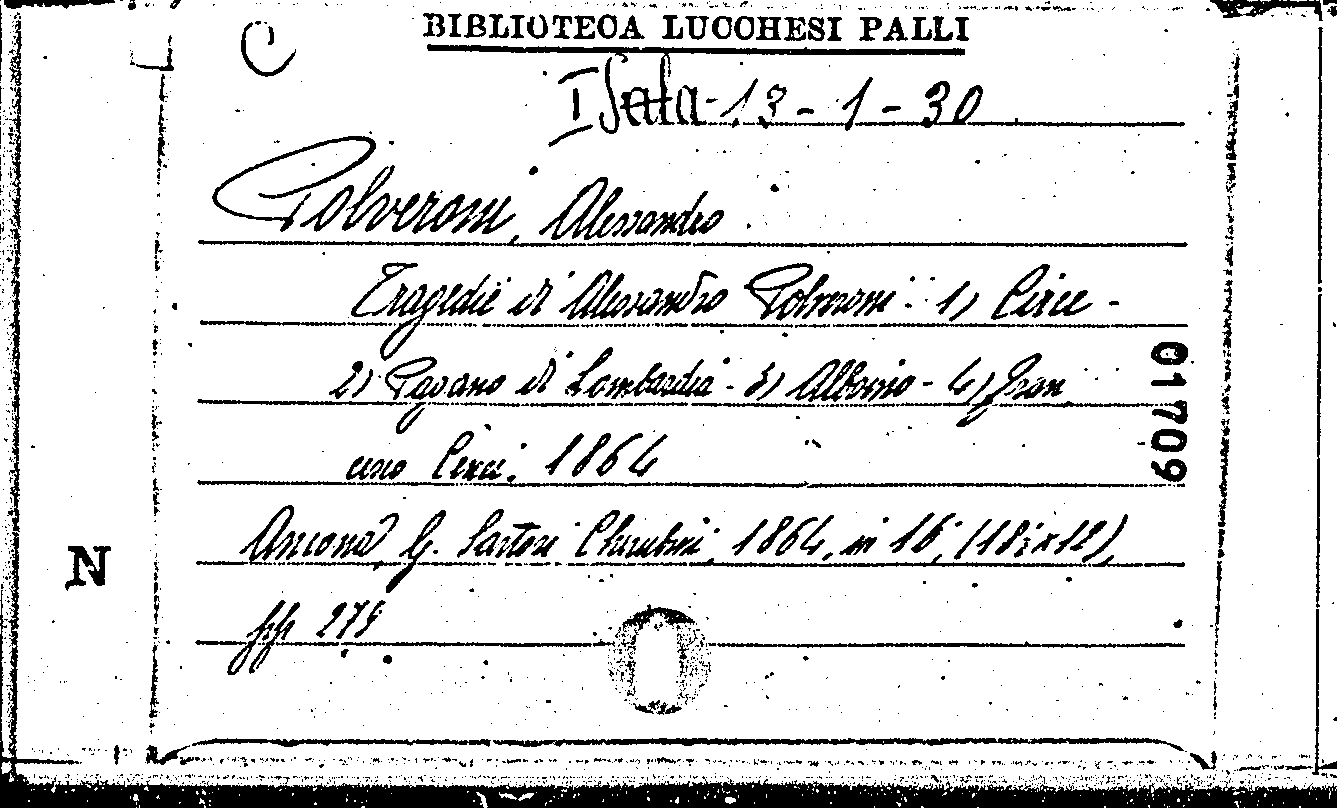 C
BIBLIOTECA LUCCHESI PALLI
I Sala - 13 - 1 - 30
Polveroni, Alessandro
Tragedie di Alessandro Polveroni: 1) Circe -
2) Pagano di Lombardia - 3) Alboino - 4) Fran
cesco Cenci. 1864
Ancona, G. Sartori Cherubini, 1864, in 16, (18 x 12),
pp 275
01709
N